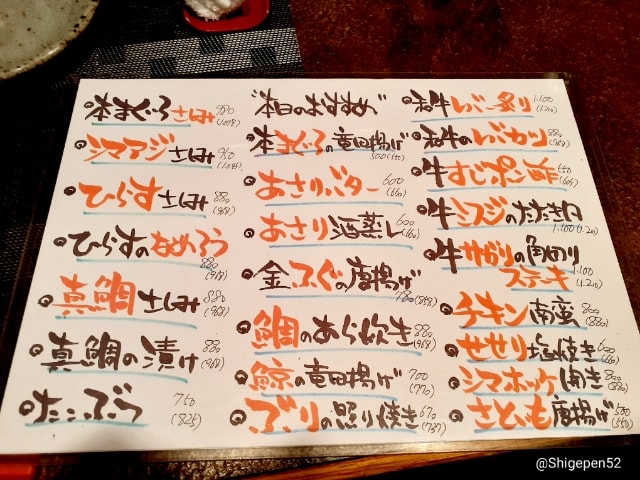 本まぐろさしみ 980 (1078)
シマアジさしみ 950 (1045)
ひらすさしみ 880 (968)
ひらすのなめろう 880 (968)
真鯛さしみ 880 (968)
真鯛の漬け 880 (968)
たこぶつ 750 (825)
"本日のおすすめ"
本まぐろの竜田揚げ 500 (550)
あさりバター 600 (660)
あさり酒蒸し 600 (660)
金ふぐの唐揚げ 780 (858)
鯛のあら炊き 880 (968)
鯨の竜田揚げ 700 (770)
ぶりの照り焼き 670 (737)
和牛レバー炙り 1.100 (1.210)
和牛のレバカツ 880 (968)
牛すじポン酢 550 (605)
牛ミスジのたたき 1.100 (1.210)
牛サガリの角切り
ステーキ 1.100 (1.210)
チキン南蛮 800 (880)
せせり塩焼き 600 (660)
シマホッケ開き 800 (880)
さといも唐揚げ 500 (550)
@Shigepen52